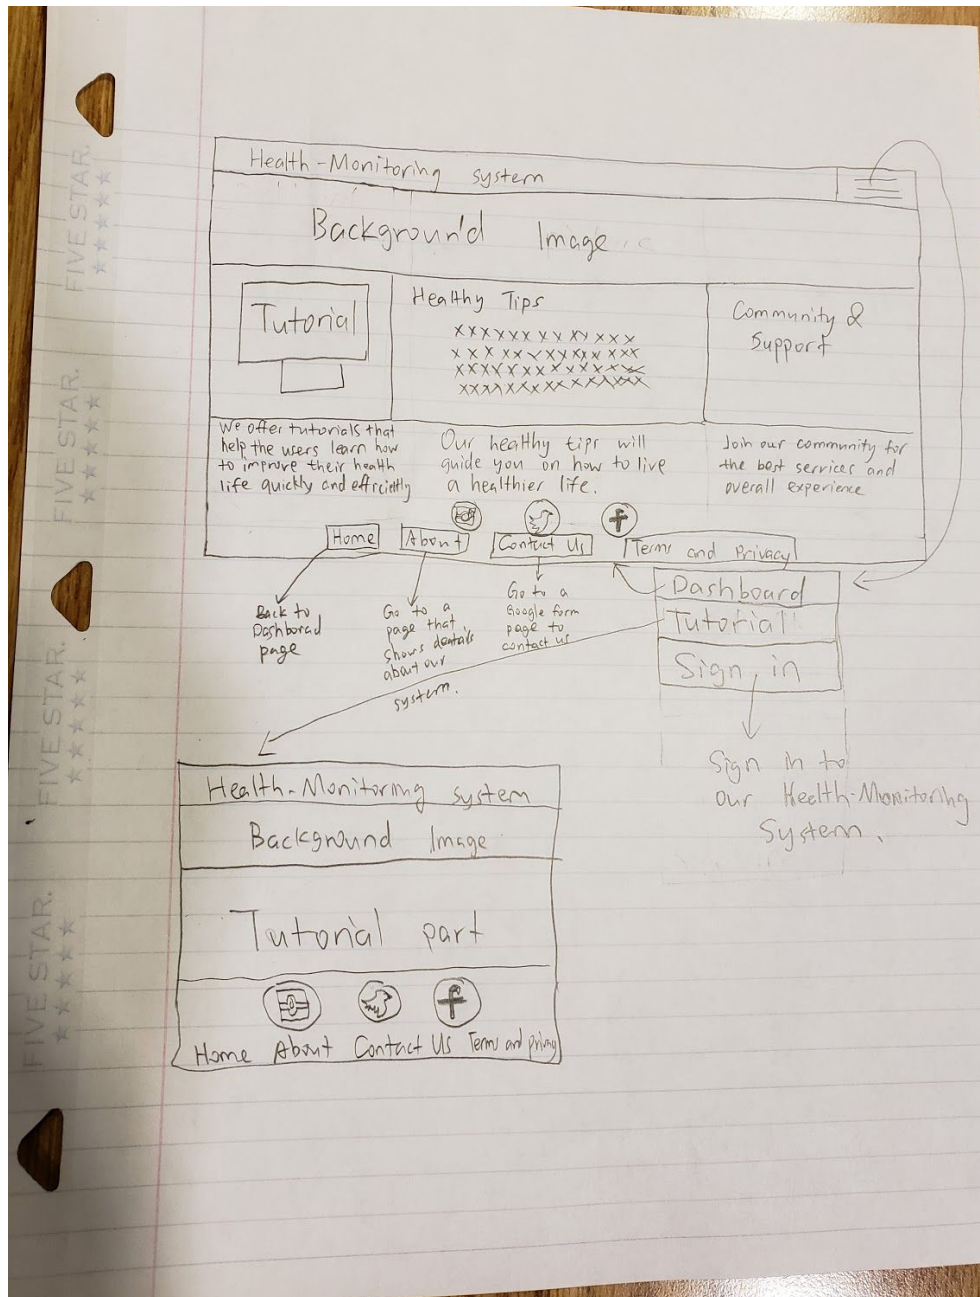 Health-Monitoring system
Background Image
Tutorial
Healthy Tips
xxxxxxx xx xx xxx
x x x xx x xxxxx xxx
xxxxxxx xxxxxxxx
xxxxxxxxxxxxxxxx
Community &
Support
We offer tutorials that
help the users learn how
to improve their health
life quickly and efficiently
Our healthy tips will
guide you on how to live
a healthier life.
Join our community for
the best services and
overall experience
f
Home
About
Contact Us
Terms and Privacy
Back to
Dashborad
page
Go to a
page that
shows deatails
about our
system.
Go to a
Google form
page to
contact us
Dashboard
Tutorial
Sign in
Sign in to
our Health-Monitoring
System.
Health-Monitoring system
Background Image
Tutorial part
f
Home About Contact Us Terms and privacy
FIVE STAR.
FIVE STAR.
FIVE STAR.
FIVE STAR.